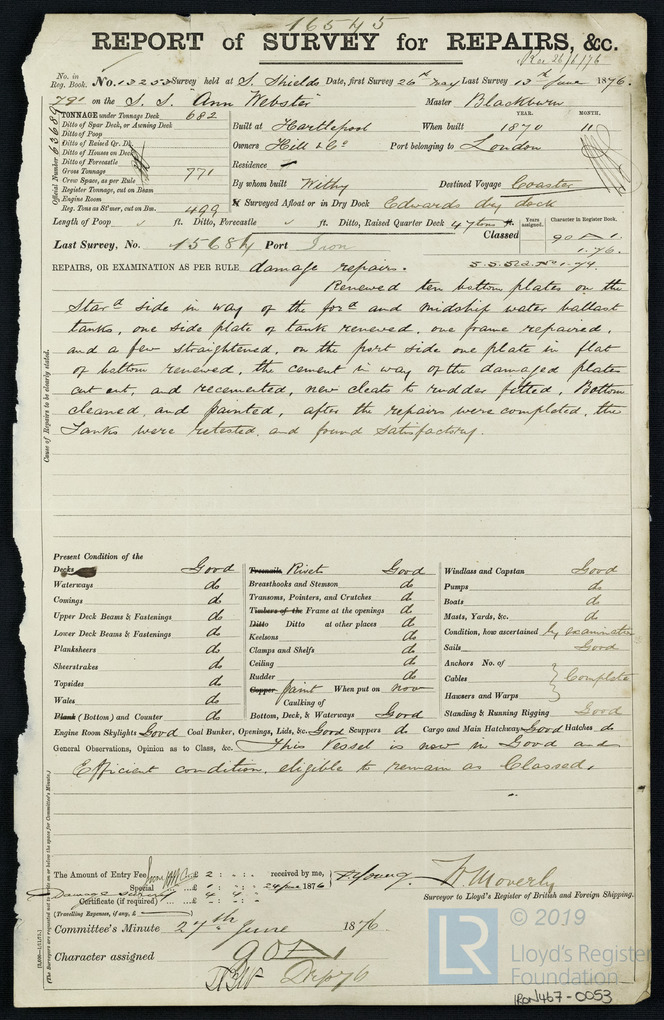 16545
REPORT of SURVEY for REPAIRS, &c.
Rec 26/6/76
No. in Reg. Book. No. 13253 Survey held at S. Shields Date, first Survey 26th May Last Survey 13th June 1876.
791 on the S.S. "Ann Webster" Master Blackburn
TONNAGE under Tonnage Deck 682
Ditto of Spar Deck, or Awning Deck
Ditto of Poop
Ditto of Raised Qr. Dk
Ditto of Houses on Deck
Ditto of Forecastle
Gross Tonnage 771
Crew Space, as per Rule
Register Tonnage, cut on Beam
Engine Room
Reg. Tons as St'mer, cut on Bm. 499
Official Number
YEAR. MONTH.
Built at Hartlepool When built 1870 11
Owners Hill & Co Port belonging to London
Residence
By whom built Withy Destined Voyage Coaster
If Surveyed Afloat or in Dry Dock Edwards dry dock
Length of Poop ft. Ditto, Forecastle ft. Ditto, Raised Quarter Deck 47 tons ft.
Years assigned. Character in Register Book.
Last Survey, No. 15684 Port Iron Classed 90 A 1.
1.76.
REPAIRS, OR EXAMINATION AS PER RULE, damage repairs.
Renewed ten bottom plates on the
Stard side in way of the ford and midship water ballast
tanks, one side plate of tank renewed, one frame repaired,
and a few straightened, on the port side one plate in flat
of bottom renewed, the cement in way of the damaged plates
cut out, and recemented, new cleats to rudder fitted, Bottom
cleaned, and painted, after the repairs were completed, the
Tanks were retested, and found satisfactory.
Cause of Repairs to be clearly stated.
Present Condition of the
Decks Good
Waterways do
Comings do
Upper Deck Beams & Fastenings do
Lower Deck Beams & Fastenings do
Planksheers do
Sheerstrakes do
Topsides do
Wales do
Plank (Bottom) and Counter do
Treenails Rivets Good
Breasthooks and Stemson do
Transoms, Pointers, and Crutches do
Timbers of the Frame at the openings do
Ditto Ditto at other places do
Keelsons do
Clamps and Shelfs do
Ceiling do
Rudder do
Copper paint When put on now
Caulking of
Bottom, Deck, & Waterways Good
Windlass and Capstan Good
Pumps do
Boats do
Masts, Yards, &c. do
Condition, how ascertained by examination
Sails Good
Anchors No. of
Cables Complete
Hawsers and Warps
Standing & Running Rigging Good
Engine Room Skylights Good Coal Bunker, Openings, Lids, &c. Good Scuppers do Cargo and Main Hatchway Good Hatches do
General Observations, Opinion as to Class, &c. This Vessel is now in Good and
Efficient condition, eligible to remain as Classed.
The Amount of Entry Fee £ 2 : - : - received by me,
Special £
Damage survey 24 June 1876
Certificate (if required)
(Travelling Expenses, if any, £
W. Moverly
Surveyor to Lloyd's Register of British and Foreign Shipping.
Committee's Minute 27th June 1876
Character assigned 90 A 1
© 2019
LR
Lloyd's Register
Foundation
IRON467-0053